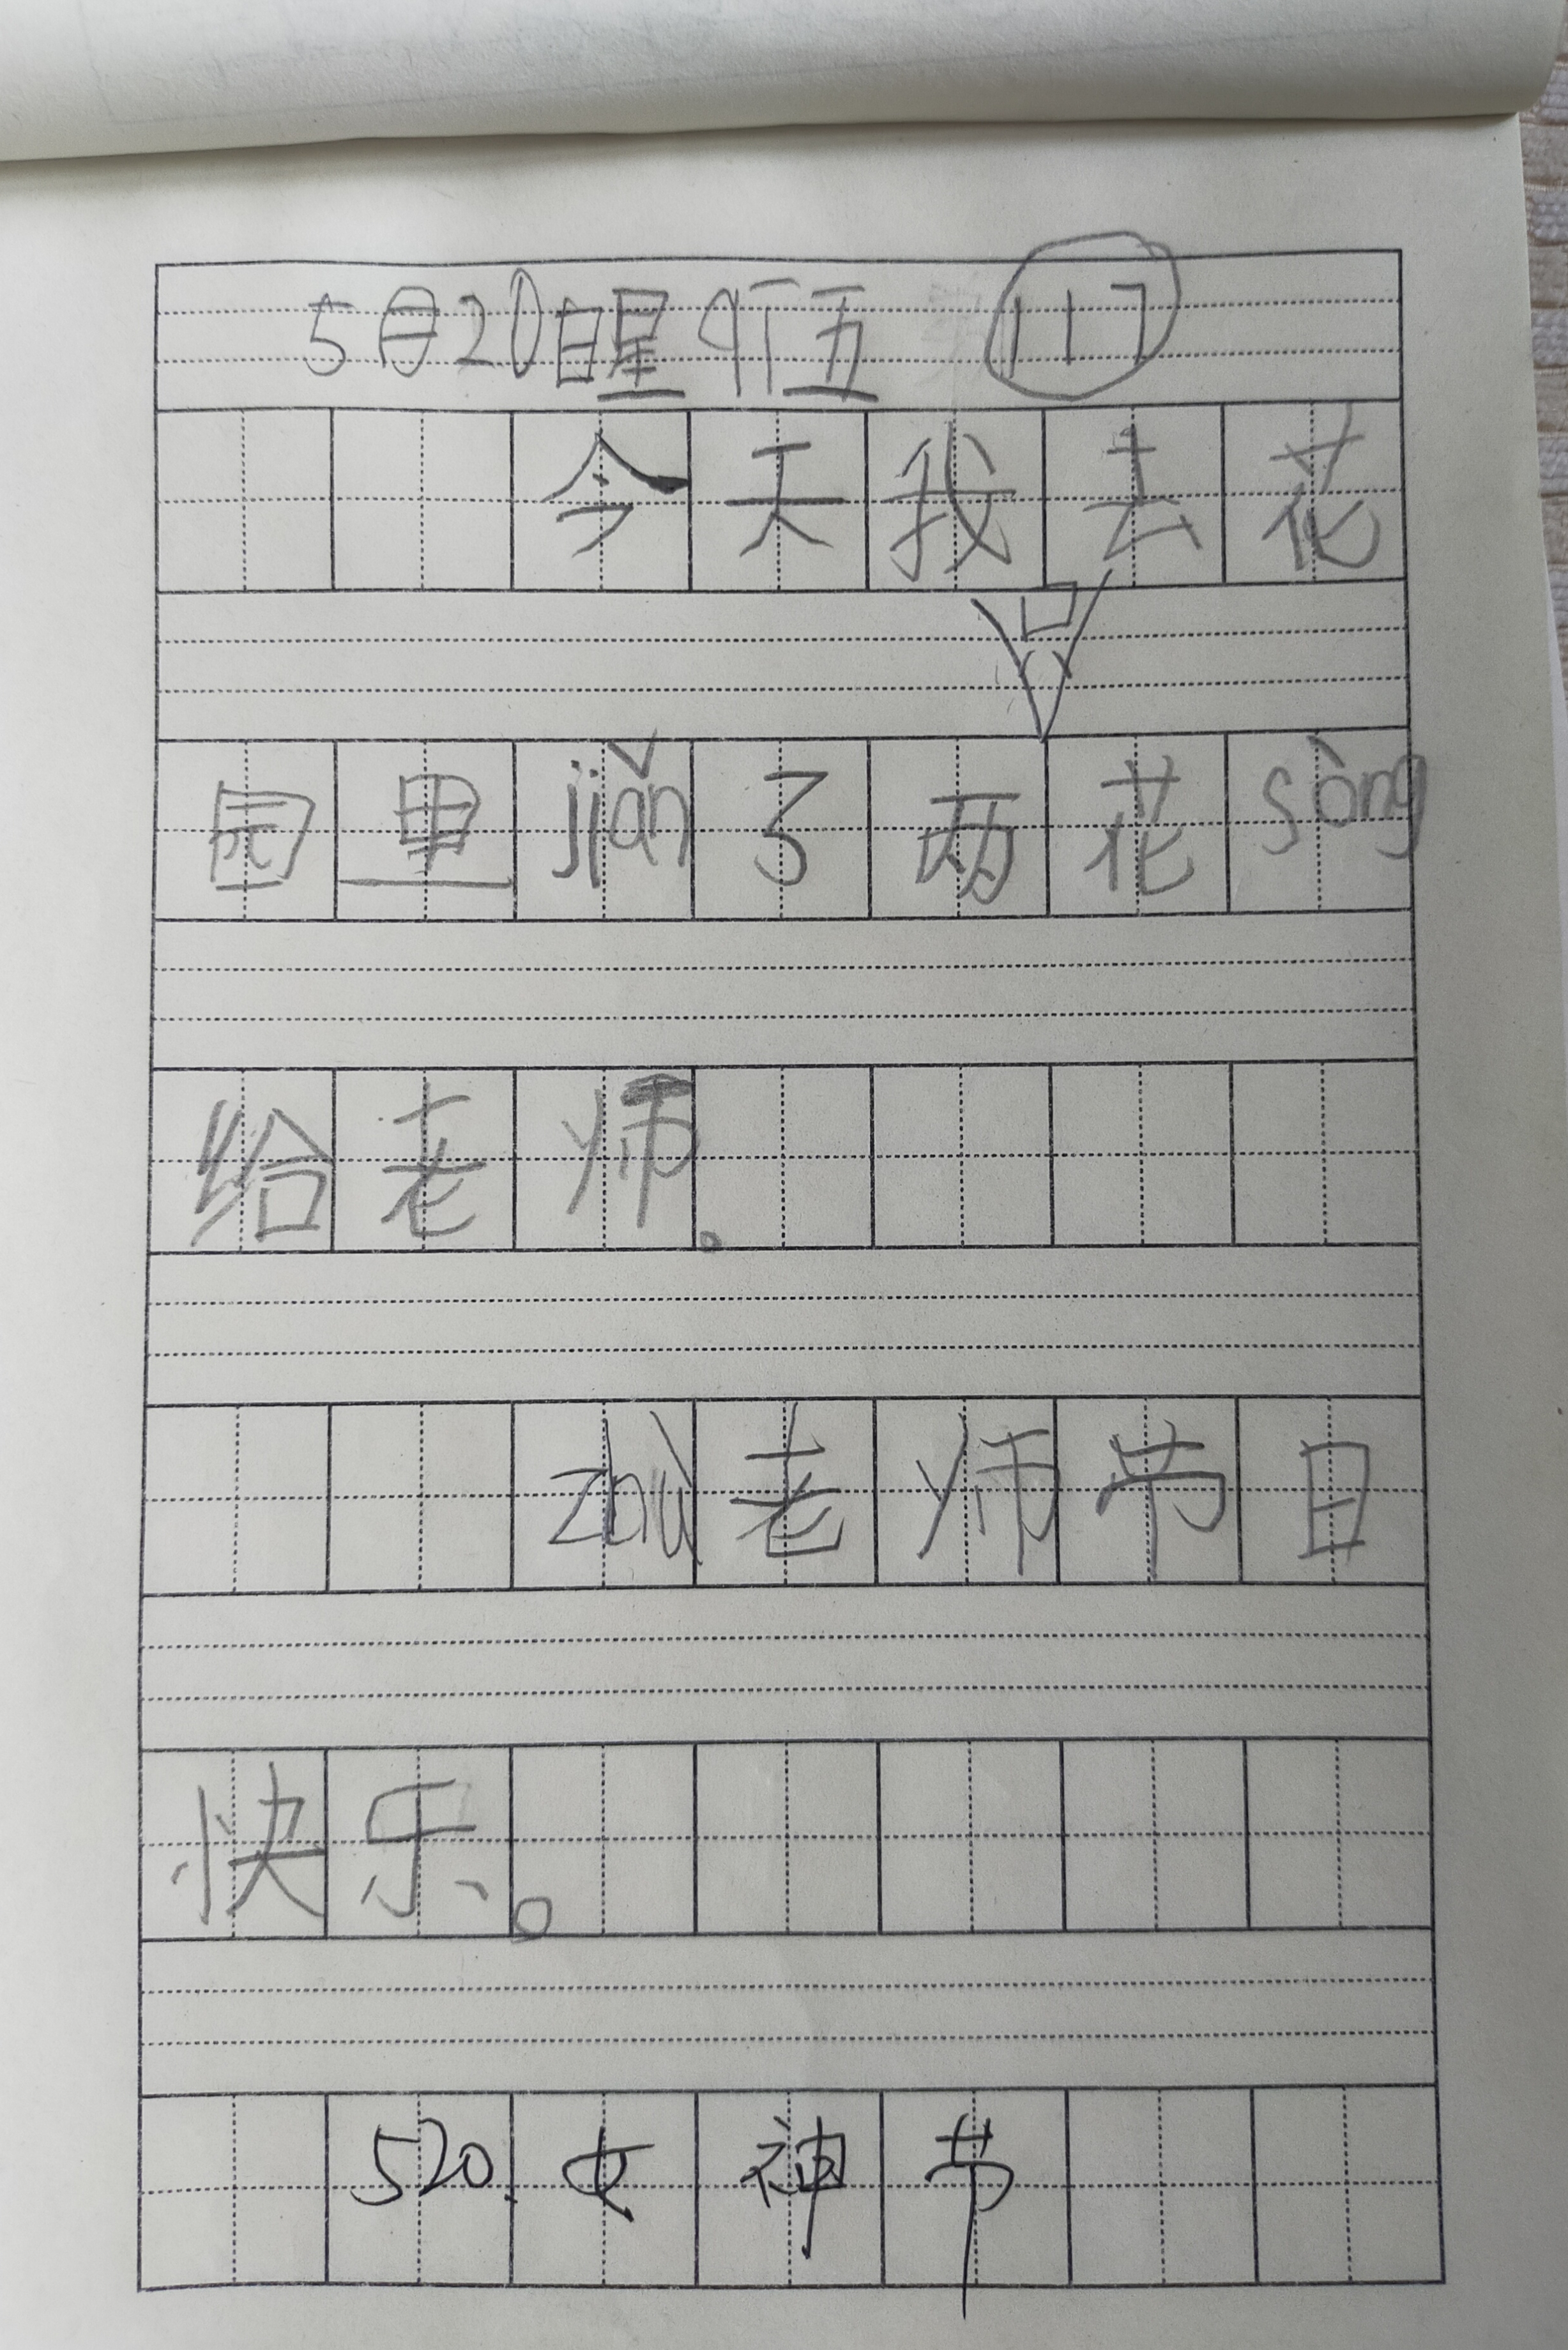 5月20日星五 117
今天我去花
园里jiǎn了两只花sòng
给老师。
zhù老师节日
快乐。
520.女神节